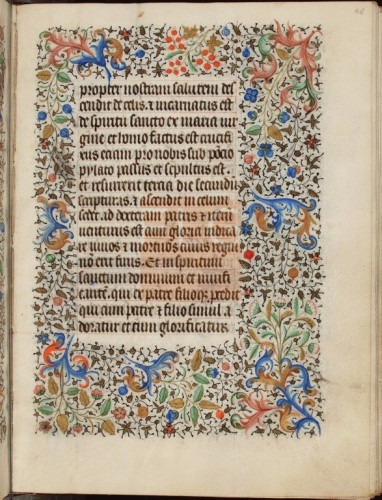 propter nostram salutem des
cendit de celis. et incarnatus est
de spiritu sancto ex maria vir
gine et homo factus est crucifi
xus eciam pro nobis sub poncio
pylato passus et sepultus est.
et resurrexit tercia die secundum
scripturas. et ascendit in celum
sedet ad dexteram patris et iterum
uenturus est cum gloria iudica
re uiuos et mortuos cuius regni
non erit finis. Et in spiritum
sanctum dominum et uiuifi
cantem. qui ex patre filioque procedit
qui cum patre et filio simul a
doratur et cum glorificatur